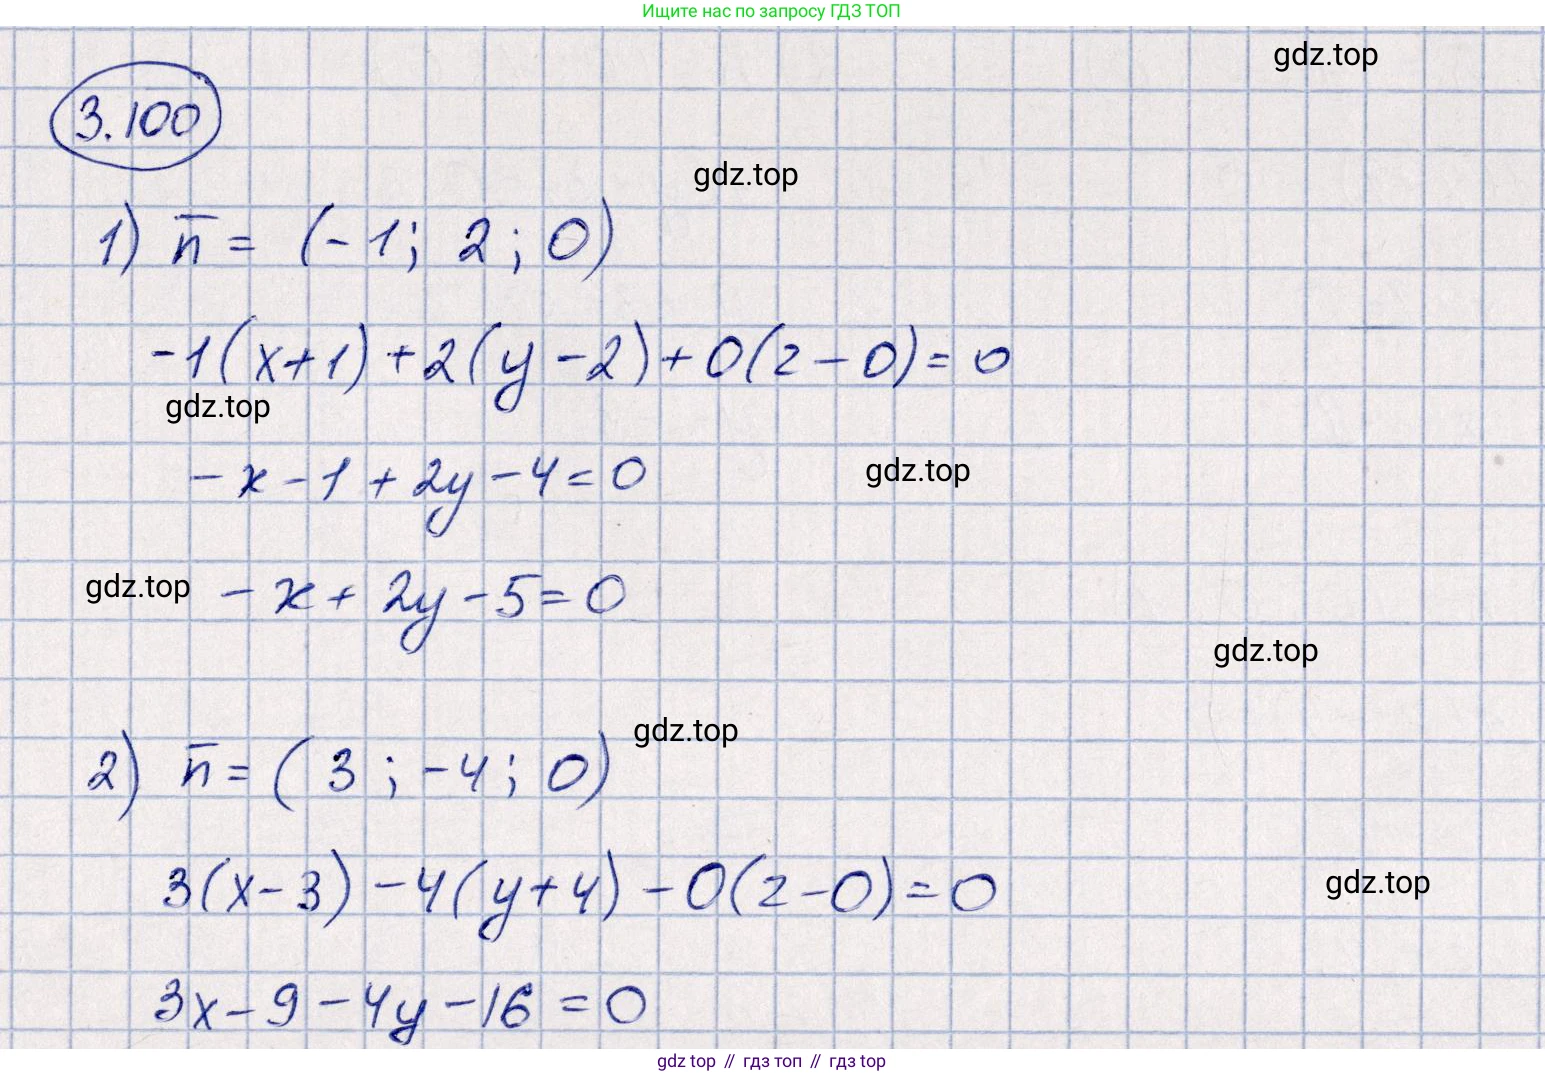 Ищите нас по запросу ГДЗ ТОП
gdz.top
3.100
gdz.top
1) n̅ = (-1; 2; 0)
-1(x+1)+2(y-2)+0(z-0)=0
gdz.top
-x-1+2y-4=0
gdz.top
gdz.top
-x+2y-5=0
gdz.top
gdz.top
2) n̅ = (3; -4; 0)
3(x-3)-4(y+4)-0(z-0)=0
gdz.top
3x-9-4y-16=0
gdz top // гдз топ // гдз top